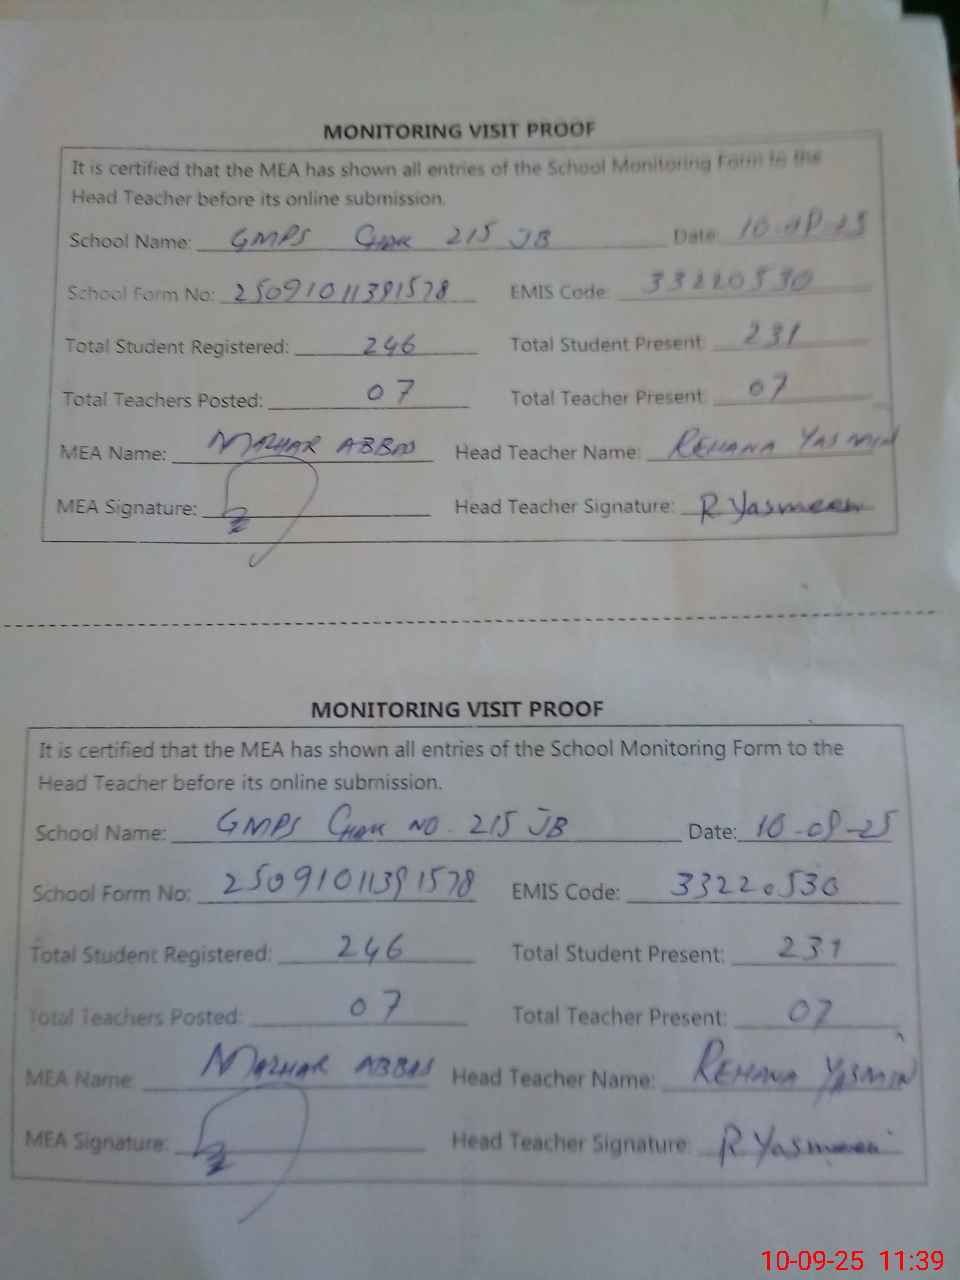 MONITORING VISIT PROOF
It is certified that the MEA has shown all entries of the School Monitoring Form to the
Head Teacher before its online submission.
School Name: GMPS Chak 215 JB Date: 10-09-25
School Form No: 25091011391578 EMIS Code: 33220530
Total Student Registered: 246 Total Student Present: 231
Total Teachers Posted: 07 Total Teacher Present: 07
MEA Name: MAZHAR ABBAS Head Teacher Name: REHANA YASMIN
MEA Signature: Head Teacher Signature: R Yasmeen
MONITORING VISIT PROOF
It is certified that the MEA has shown all entries of the School Monitoring Form to the
Head Teacher before its online submission.
School Name: GMPS Chak NO. 215 JB Date: 10-09-25
School Form No: 25091011391578 EMIS Code: 33220530
Total Student Registered: 246 Total Student Present: 231
Total Teachers Posted: 07 Total Teacher Present: 07
MEA Name: MAZHAR ABBAS Head Teacher Name: REHANA YASMIN
MEA Signature: Head Teacher Signature: R Yasmeen
10-09-25 11:39